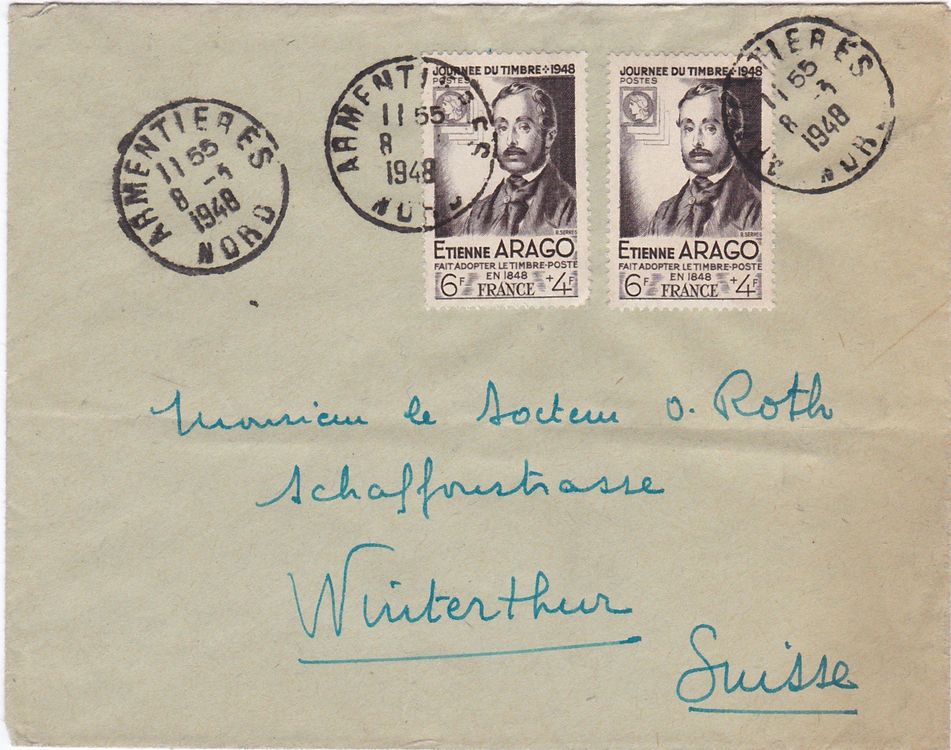 ARMENTIERES
11 55
8 -5
1948
NORD
ARMENTIERES
11 55
8
1948
NORD
JOURNEE DU TIMBRE + 1948
POSTES
R. SERRES
ETIENNE ARAGO
FAIT ADOPTER LE TIMBRE-POSTE
EN 1848
6F FRANCE +4F
JOURNEE DU TIMBRE + 1948
POSTES
R. SERRES
ETIENNE ARAGO
FAIT ADOPTER LE TIMBRE-POSTE
EN 1848
6F FRANCE +4F
TIERES
11 55
8 -5
1948
NOR
Monsieur le Docteur O. Roth
Schaffoustrasse
Winterthur
Suisse